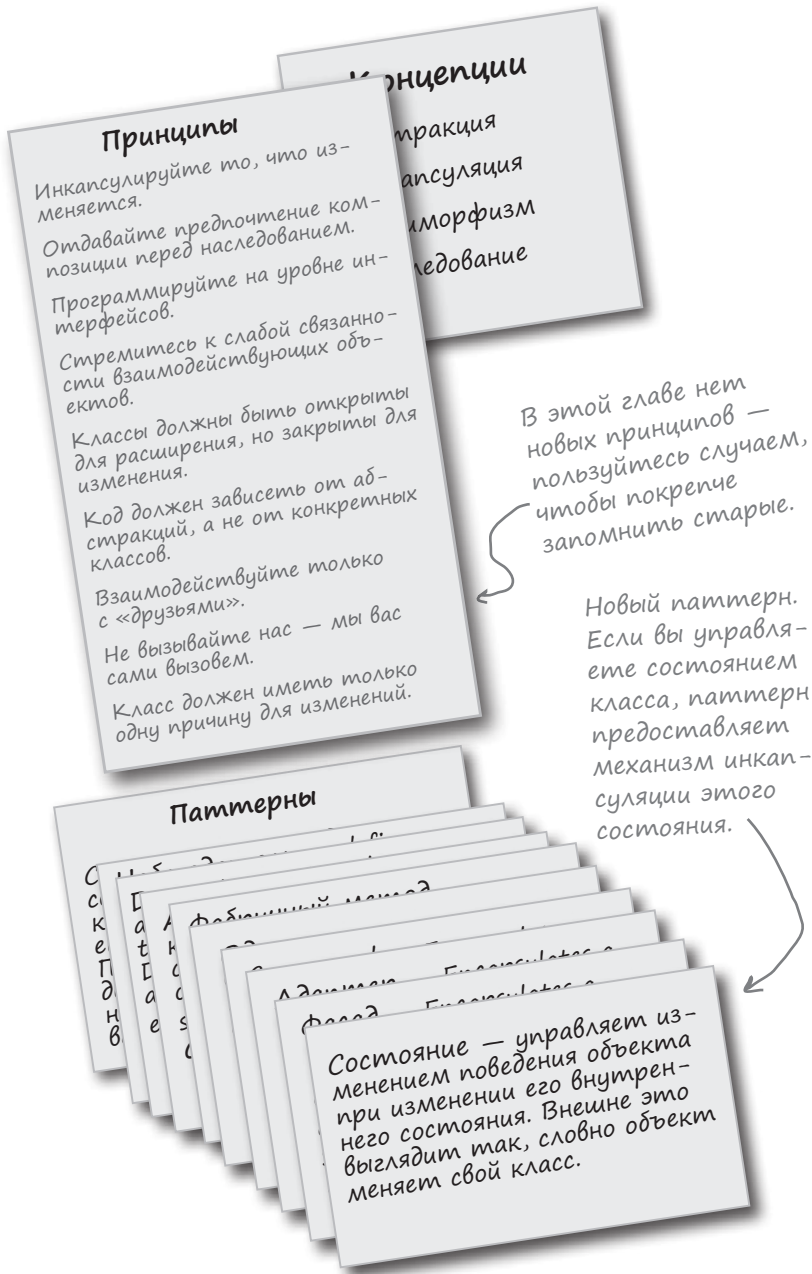 Концепции
тракция
апсуляция
морфизм
ледование
Принципы
Инкапсулируйте то, что из-
меняется.
Отдавайте предпочтение ком-
позиции перед наследованием.
Программируйте на уровне ин-
терфейсов.
Стремитесь к слабой связанно-
сти взаимодействующих объ-
ектов.
Классы должны быть открыты
для расширения, но закрыты для
изменения.
Код должен зависеть от аб-
стракций, а не от конкретных
классов.
Взаимодействуйте только
с «друзьями».
Не вызывайте нас — мы вас
сами вызовем.
Класс должен иметь только
одну причину для изменений.
В этой главе нет
новых принципов —
пользуйтесь случаем,
чтобы покрепче
запомнить старые.
Новый паттерн.
Если вы управля-
ете состоянием
класса, паттерн
предоставляет
механизм инкап-
суляции этого
состояния.
Паттерны
Фабричный метод
Адаптер — Encapsulates a
Фасад — Encapsulates a
Состояние — управляет из-
менением поведения объекта
при изменении его внутрен-
него состояния. Внешне это
выглядит так, словно объект
меняет свой класс.